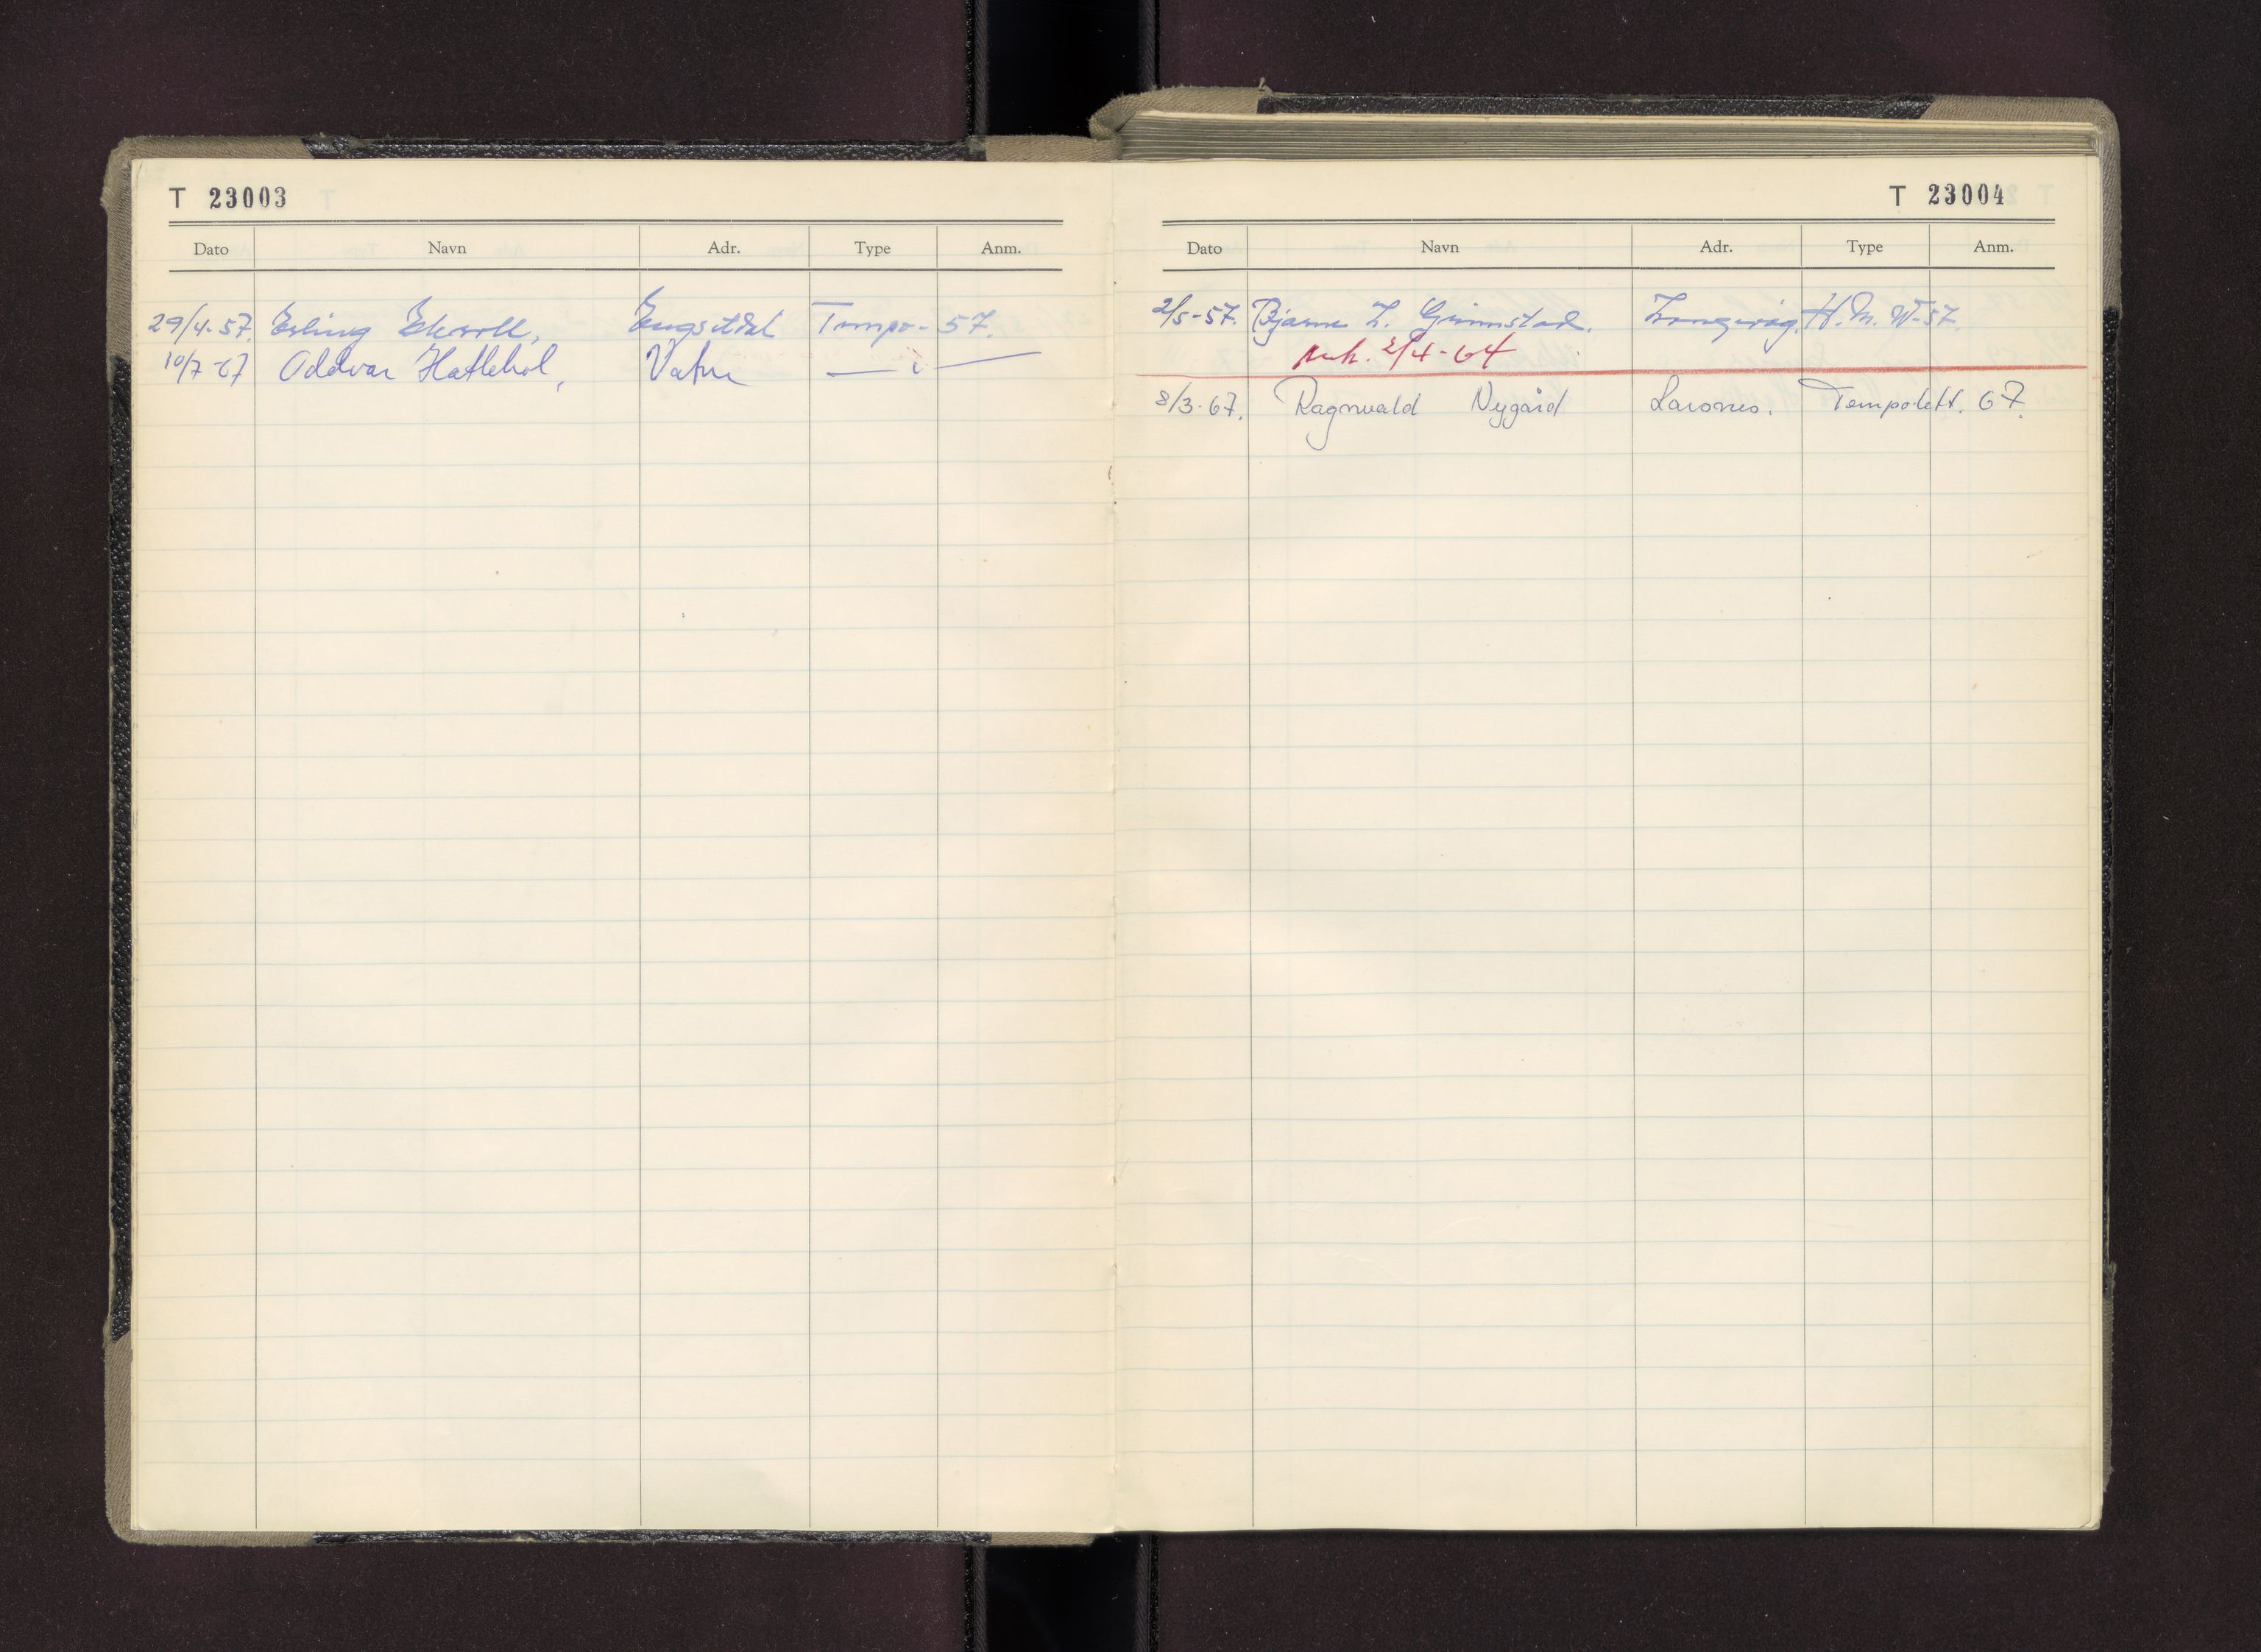 T 23003
Dato Navn Adr. Type Anm.
29/4-57. Erling Ekroll, Engsetdal Tempo- 57.
10/7-67 Oddvar Hatlehol, Vatne — " —
T 23004
Dato Navn Adr. Type Anm.
2/5-57. Bjarne L. Grimstad. Langevåg. H.M.W-57
avh. 2/4-64
8/3-67. Ragnvald Nygård Larsnes. Tempolett. 67.